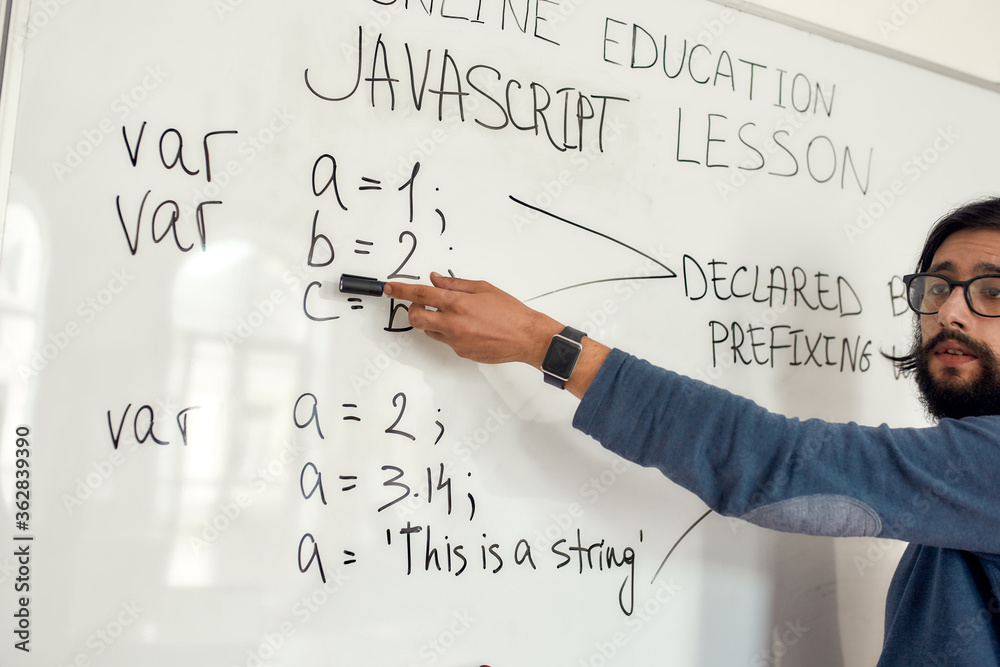 ONLINE EDUCATION
JAVASCRIPT LESSON
var a = 1;
var b = 2;
c = b
DECLARED
PREFIXING
var a = 2;
a = 3.14;
a = 'This is a string'
Adobe Stock | #362839390